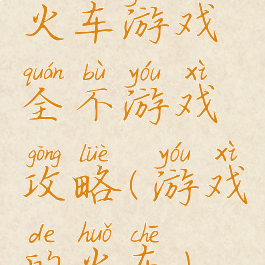 火车游戏
quán bù yóu xì
全不游戏
gōng lüè yóu xì
攻略(游戏
de huǒ chē
的火车)